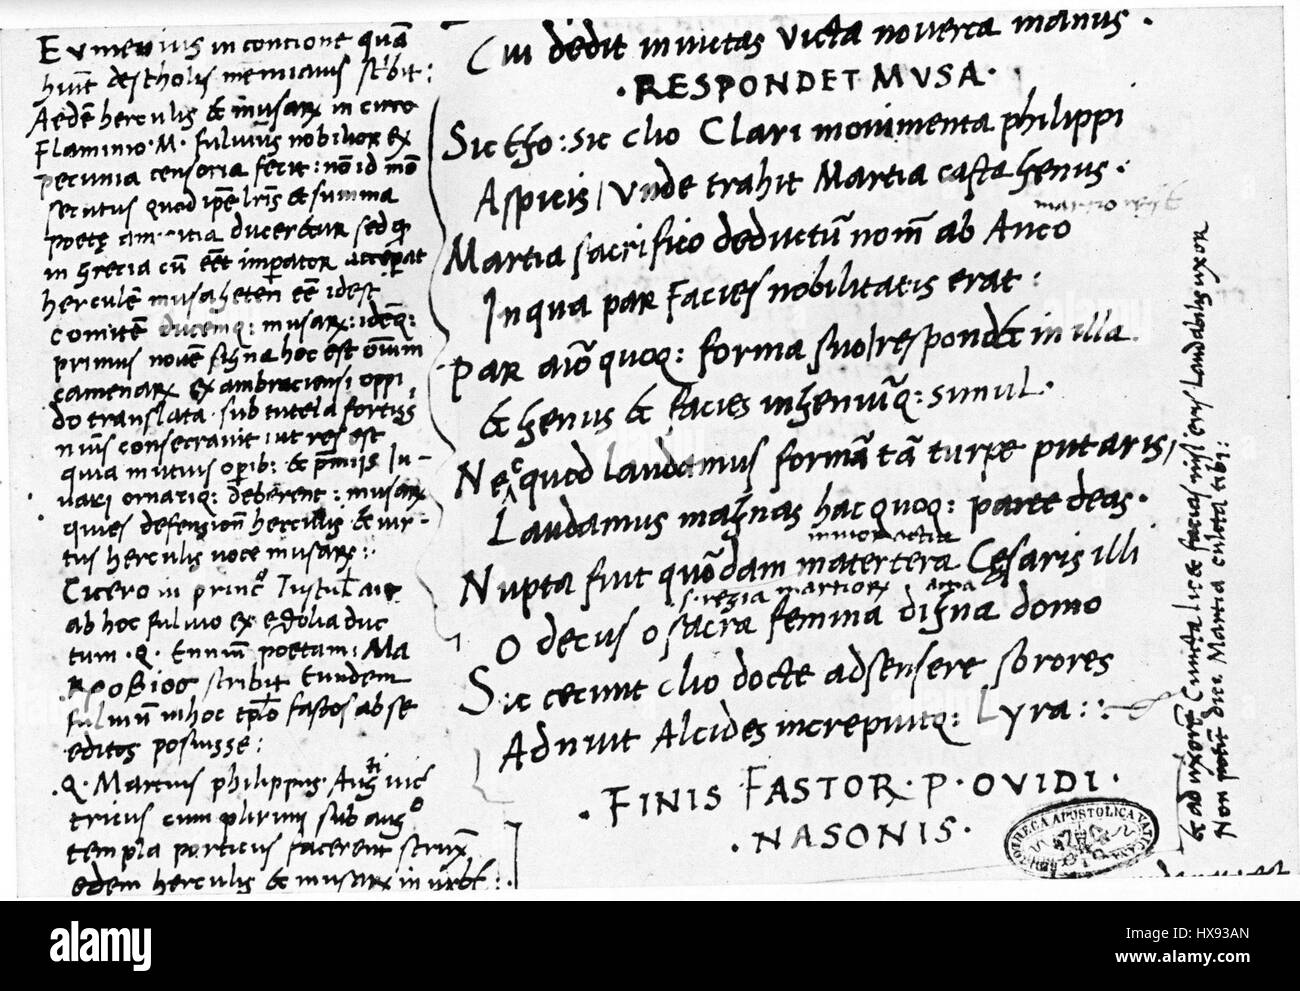 Eumenius in concione quã
hiut de scholis menianis scribit:
Aedẽ herculis & musarꝝ in circo
Flaminio · M · fulvius nobilior ex
pecunia censoria fecit: nõ id mõ
secutus quod ipse
& summa
poetę amicitia duceretur sed
in grecia cũ imperator acceperat
herculẽ musagetẽ eẽ idest
comitẽ ducemq: musarꝝ: idemq:
primus novẽ signa hoc est oĩum
camenarꝝ ex ambraciensi oppi
do translata · sub tutela fortiss
numis consecravit ut res est
quia mutuis opib: & p̃miis Iu-
vari ornariq: deberent: musarꝝ
quies defensiõe herculis & vir-
tus herculis voce musarꝝ:
Cicero in princ° Tuscul ait
ab hoc fulvio ex ętolia duc
tum · Q · Enniũ poetam: Ma
ΚΡΟΒΙΟC scribit Eundem
fulviũ in hoc tplo fastos ab se
editos posuisse:
Q · Martius philippus Aug vic
tricus cum plurimi sub aug°
templa porticus facerent strux
edem herculis & musarꝝ in urbe:
Cui dedit invictas victa noverca manus ·
· RESPONDET MVSA ·
Sic ego: sic clio Clari monimenta philippi
Aspicis / Vnde trahit Martia casta genus ·
Martia sacrifico deductũ nom̃ ab Anco
In qua par Facies nobilitatis erat:
par aĩo quoq: forma suo / respond& in illa
& genus & facies ingeniũq: simul ·
Nec quod laudamus formã tã turpe putaris /
Laudamus magnas hac quoq: parte deas ·
Nupta fuit quõdam matertera Cęsaris illi
s. regia martiorꝝ
O decus o sacra femina digna domo
Sic cecinit clio doctę adsensere sorores
Adnuit Alcides increpuitq: Lyra:
· FINIS FASTOR · P · OVIDI ·
· NASONIS ·
Non potuit dici Martia culta tibi:
BIBLIOTHECA APOSTOLICA VATICANA
alamy
a
alamy
HX93AN
www.alamy.com